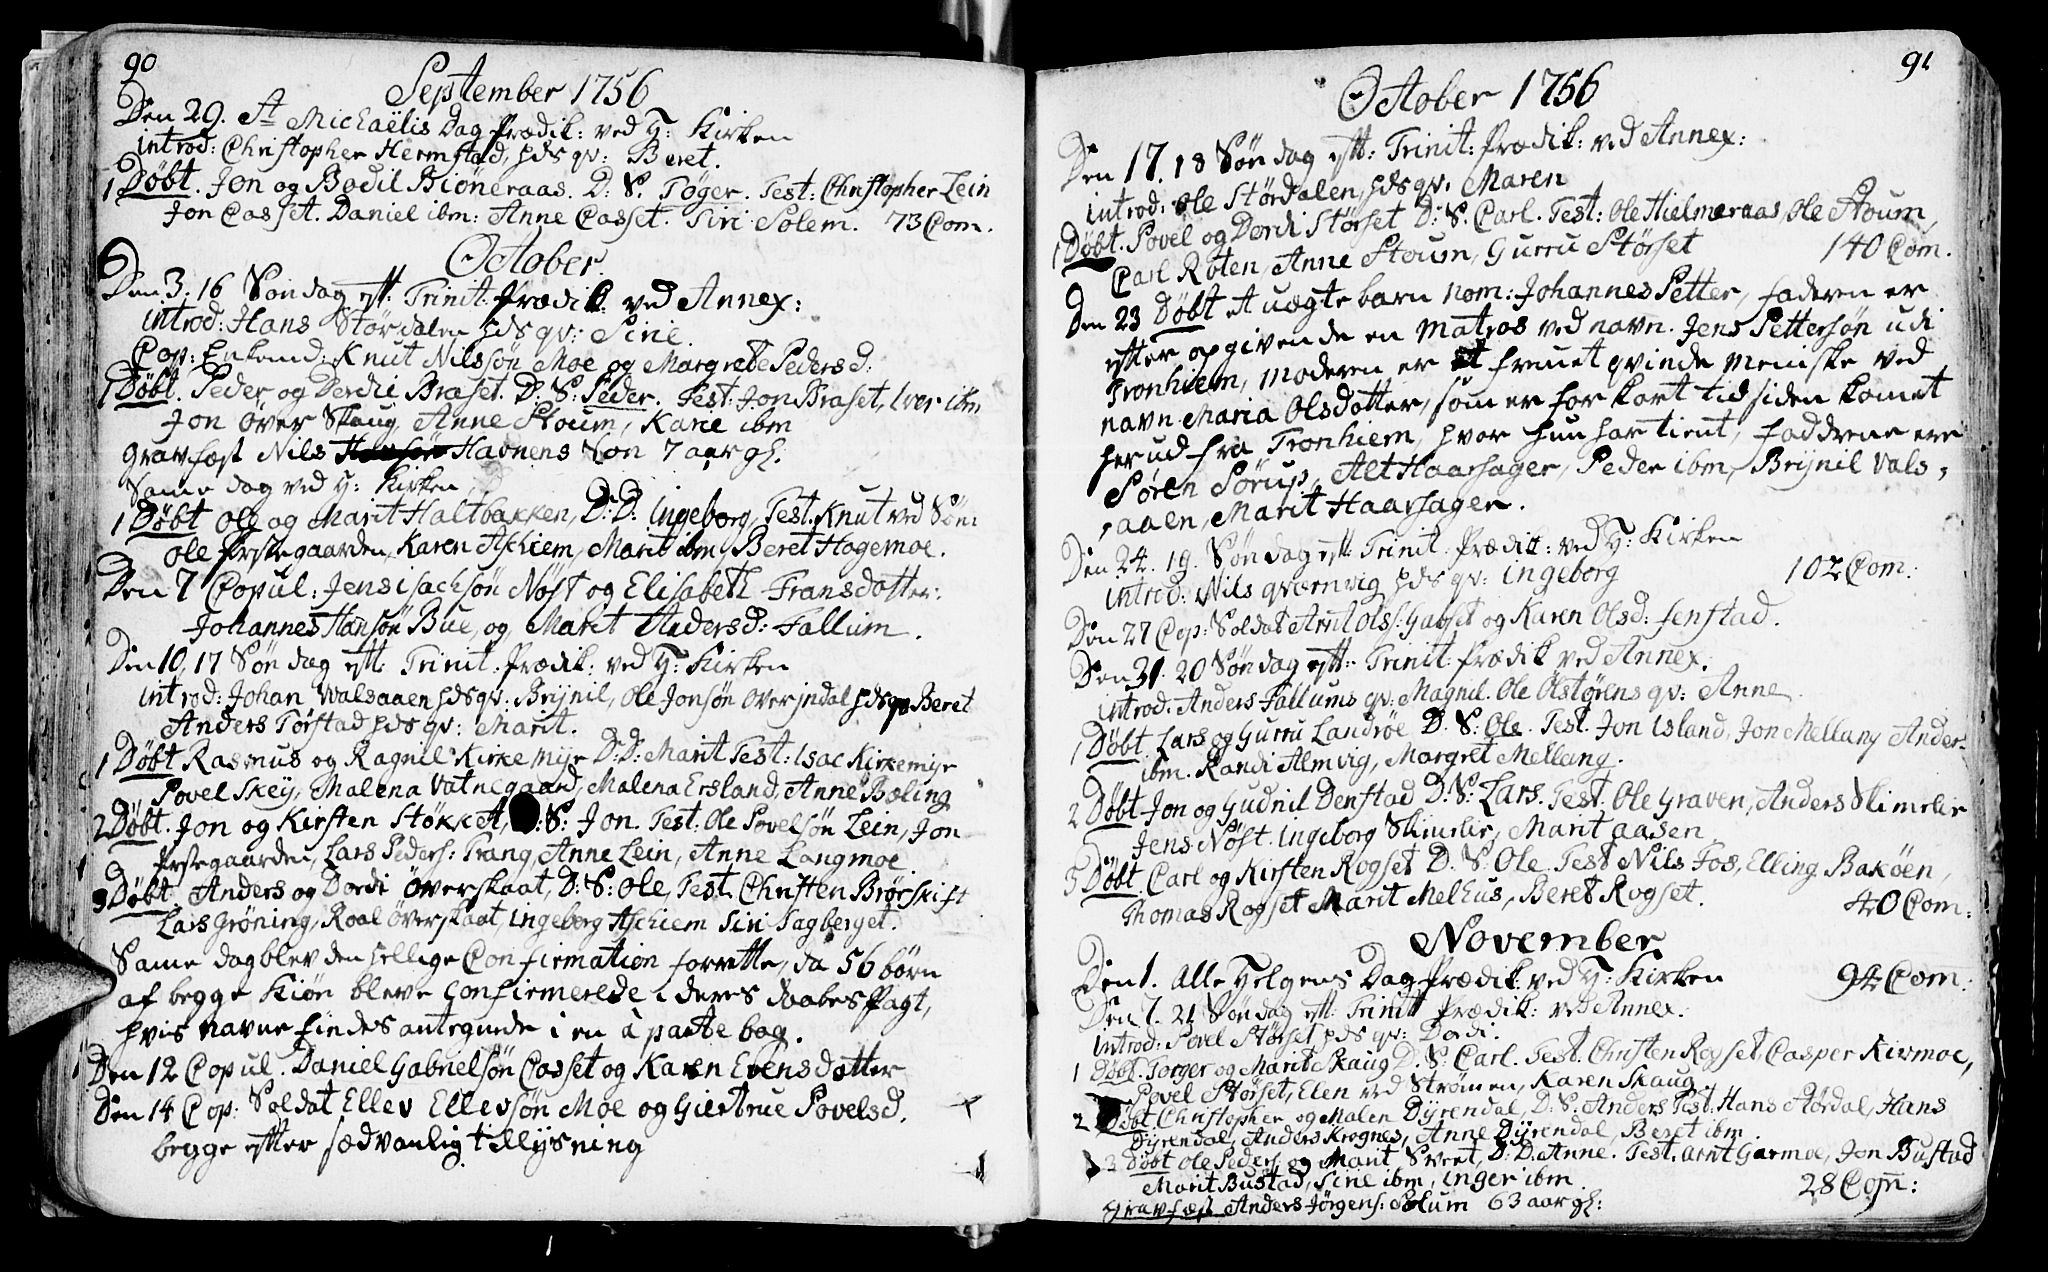 90
September 1756
Den 29. St Michaëlis Dag Prædik: ved H: Kirken
introd: Christopher Hermstad, hds qv: Beret.
1 Døbt. Jon og Bodil Biöneraas. D: S. Tøger. Test: Christopher Lein
Jon Casset. Daniel ibm: Anne Casset. Siri Solem. 73 Com.
October
Den 3. 16 Søndag eft: Trinit. Prædik: ved Annex:
introd: Hans Størdalen hds qv: Sine.
Cop: Enkemd: Knut Nilssøn Moe og Margrete Pedersd:
1 Døbt. Peder og Derdie Braset. D: S: Peder. Test: Jon Braset, Iver ibm
Jon over Skaug Anne Stoum, Karie ibm
Gravfæst Nils Havnens Søn 7 aar gl.
Same dag ved H: Kirken
1 Døbt Ole og Marit Haltbakken, D: D: Ingeborg, Test. Knut ved
Ole Prstegaarden, Karen Aschiem, Marit ibm, Beret Hagemoe.
Den 7 Copul: Jens isachsøn Nøst og Elisabeth Fransdotter:
Johannes Hansøn Bue, og Marit Andersd: Fallum.
Den 10. 17 Søndag eft: Trinit. Prædik: ved H: Kirken
introd: Johan Walsaaen hds qv: Brynil, Ole Jonsøn over jndal hds qv Beret
Anders Tørstad hds qv: Marit.
1 Døbt Rasmus og Ragnil Kirkemyr D: D: Marit Test: Isac Kirkemyr
Povel Skey, Malena Vatnegaard, Malena Ersland, Anne Bæling
2 Døbt. Jon og Kirsten Støkket, D: S: Jon. Test: Ole Povelsøn Lein, Jon
Prstegaarden, Lars Peders: Trang, Anne Lein, Anne Langmoe.
3 Døbt. Anders og Dordi Överskaat, D: S: Ole, Test. Christen Brørskift
Lars Grøning, Roal Överskaat, Ingeborg Aschiem Siri Sagberget.
Same dag blev den hellige Confirmation forrette, da 56 børn
af begge Kiøn bleve Confirmerede i deres daabes Pagt,
hvis navne findes antegnede i en à parte bog.
Den 12 Copul. Daniel Gabrielsøn Casset og Karen Evensdatter
Den 14 Cop: Soldat Ellev Ellevsøn Moe og Giertrue Povelsd.
begge efter sædvanlig tillysning
91
October 1756
Den 17. 18 Søndag eft: Trinit: Prædik: ved Annex:
introd: Ole Størdalen, hds qv: Maren
1 Døbt. Povel og Dordi Størset D: S. Carl. Test: Ole Hielmeraas, Ole Stoum,
Carl Røten, Anne Stoum, Gurru Størset 140 Com.
Den 23 Døbt et uægte barn nom: Johannes Petter, faderen er
efter opgivende en Matros ved navn. Jens Pettersøn udi
Tronhiem, moderen er et fremet qvinde menniske ved
navn Maria Olsdotter, som er for kort tid siden komet
her ud fra Tronhiem, hvor hun har tient, Faddrene ere
Søren Sørup, Alt Haarhager, Peder ibm, Brynil Vals,
,aaen, Marit Haarhager.
Den 24. 19. Søndag eft: Trinit. Prædik: ved H: Kirken
introd: Nils qværnvig hds qv: ingeborg 102 Com:
Den 27 Cop: Soldat Arnt Ols: Gabset og Karen Olsd: Fenstad.
Den 31. 20 Søndag eft: Trinit. Prædik ved Annex.
introd: Anders Fallums qv: Magnil. Ole Ölstørens qv: Anne
1 Døbt Lars og Gurru Landröe D. S: Ole. Test. Jon Island, Jon Mellang Anders
ibm. Randi Almvig, Margret Mellang.
2 Døbt Jon og Gudnil Denstad D. S: Lars. Test. Ole Graven, Anders Skimelie
Jens Nøst. Ingeborg Skimelie, Marit aasen
3 Døbt Carl og Kirsten Rogset D. S. Ole. Test Nils Fos, Elling Bakøen,
Thomas Rogset Marit Melhus, Beret Rogset. 40 Com:
November
Den 1. Alle Helgens Dag Prædik. ved H: Kirken 94 Com:
Den 7. 21 Søndag eft: Trinit Prædik: ved Annex.
introd: Povel Størset hds qv: Dordi.
1 Døbt. Torger og Marit Skaug D. S. Carl. Test. Christen Rogset Casper Kirmoe,
Povel Størset, Elen ved Strømen, Karen Skaug.
2 Døbt Christopher og Malen Dyrendal, D. S. Anders Test: Hans Størdal, Hans
Dyrendal, Anders Krognes, Anne Dyrendal, Beret ibm.
3 Døbt Ole Peders og Marit Sveet, D: D. Anne. Test. Arnt Garmoe, Jon Bustad
Marit Bustad, Sine ibm, inger ibm. 28 Com:
Gravfæst Anders Jörgens: Solum 63 aar gl: